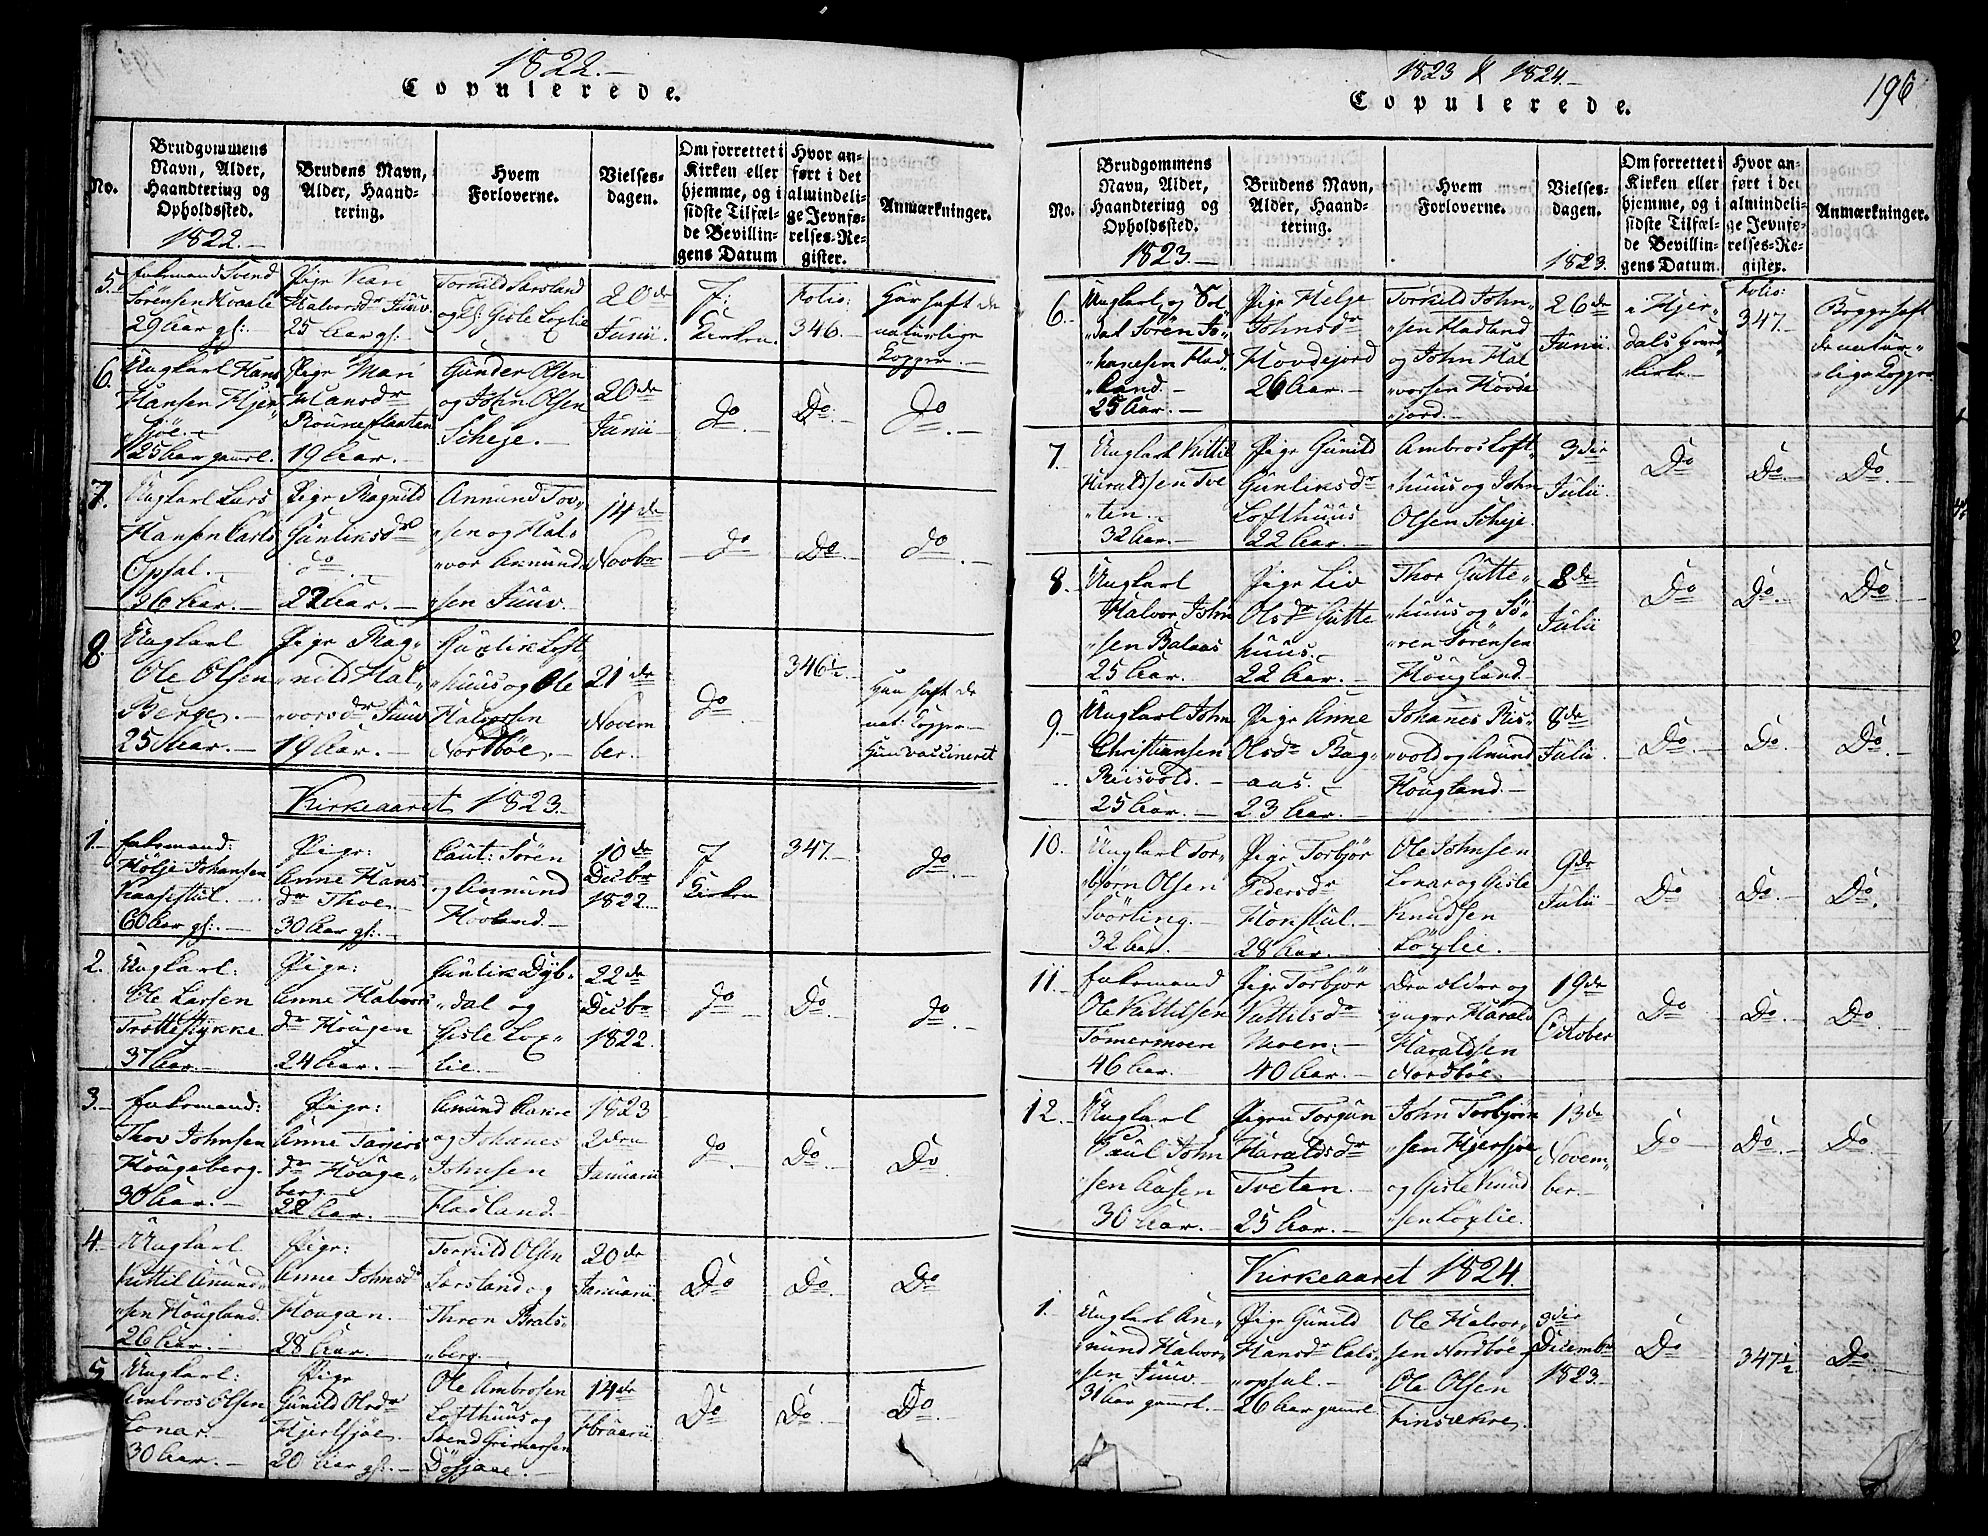 1822.-
Copulerede.
No.
Brudgommens
Navn, Alder,
Haandtering og
Opholdssted.
1822.-
Brudens Navn,
Alder, Haand-
tering.
Hvem
Forloverne.
Vielses-
dagen.
Om forrettet i
Kirken eller
hjemme, og i
sidste Tilfæl-
de Bevillin-
gens Datum
Hvor an-
ført i det
almindeli-
ge Jevnfø-
relses-Re-
gister.
Anmærkninger.
5.
Enkemand Svend
Sörensen Kvaale
29 Aar gl:
Pige Kari
Halvorsdr Juuv
25 Aar gl:
Torkild Sarsland
og Gisle Loxlie
20de
Junii.
I
Kirken.
Folio:
346.
Har haft de
naturlige
Kopper.
6.
Ungkarl Hans
Hansen Hjer-
sjöe.-
25 Aar gaml.
Pige Mari
Hansdr
19 Aar.
Gunder Olsen
og John Olsen
Scheje.-
20de
Junii
do
Do.
Do
7.
Ungkarl Lars
Hansen Carls
Opsal.-
36 Aar.-
Pige Ragnild
Gunliksdr
do
22 Aar.-
Amund Tov-
sen og Hal-
vor Amund
sen Juuv.
14de
Novbr
do
Do.
do
8.
Ungkarl
Ole Olsen
Berge.-
25 Aar.-
Pige Rag-
nild Hal-
vorsdr Juuv
19 Aar.-
Gunlik Loft
huus og Ole
Halvorsen
Nordböe.
21de
Novem
ber.
do
346½.
Han haft de
nat: Kopper
Hun vaccineret
Kirkeaaret 1823.
1.
Enkemand:
Hölje Johansen
Kaasestul.
60 Aar gl:.-
Pige:
Anne Hans
dr Thoe.-
30 Aar gl:.-
Sören
og Amund
Hovland.-
10de
Decbr
1822.
I
Kirken
347.-
do
2.
Ungkarl:
Ole Larsen
Trottestykke
37 Aar.
Pige:
Anne Halvors
dr Haugen
24 Aar.-
Gunlik Dyb-
dal og
Gisle Lox-
lie.-
22de
Decbr
1822.
do
Do.
do
3.
Enkemand:
Thov Johnsen
Haugeberg.
30 Aar.-
Pige:
Anne Tarjeis
dr Hauge-
berg.-
22 Aar.-
Amund Aakre
og Johanes
Johnsen
Fladland.-
1823
2den
Januarii
do
Do.
Do
4.
Ungkarl
Kittil Amund-
sen Hougland.
26 Aar.-
Pige:
Anne Johnsdr
Hougan.-
28 Aar.
Torkild Olsen
Sarsland og
Thron Brats-
berg.-
20de
Januarii
Do
Do.
Do
5
Ungkarl:
Ambros Olsen
Lonar.
30 Aar.-
Pige
Gunild Olsdr
Hjersjöe.
20 Aar gl:.-
Ole Ambrosen
Lofthuus og
Svend Grimersen
Dösjaae.-
14de
Februarii
Do
Do.
Do
1823 & 1824.-
Copulerede.
196
No.
Brudgommens
Navn, Alder,
Haandtering og
Opholdssted.
1823.-
Brudens Navn,
Alder, Haand-
tering.
Hvem
Forloverne.
Vielses-
dagen.
1823.
Om forrettet i
Kirken eller
hjemme, og i
sidste Tilfæl-
de Bevillin-
gens Datum.
Hvor an-
ført i det
almindeli-
ge Jevnfø-
relses-Re-
gister.
Anmærkninger.
6.
Ungkarl og Sol
dat Sören Jo-
hanesen Flad-
land.-
25 Aar.-
Pige Helge
Johnsdr
Hovdejord
26 Aar.
Torkild John-
sen Fladland
og John Hal
vorsen Hovde
jord.
26de
Junii
i Hjer-
dals Hoved
kirke.-
Folio:
347.
Begge haft
de natur-
lige Kopper
7.
Ungkarl Kittil
Haraldsen Tve
ten.-
32 Aar.-
Pige Gunild
Gunliksdr
Lofthuus
22 Aar.-
Ambros Loft-
huus og John
Olsen Scheje.
3die
Julii.
Do
Do.
Do
8.
Ungkarl
Halvor John
sen Balaas
25 Aar.
Pige Liv
Olsdr Gutte
huus.-
22 Aar.-
Thor Gutte-
huus og Sö-
ren Sörensen
Hougland.
8de
Julii
Do
Do.
Do
9.
Ungkarl John
Christiansen
Riisvold.-
25 Aar.-
Pige Anne
Olsdr Bag-
aas.-
23 Aar.-
Johanes Ris-
vold og Amund
Hougland.-
8de
Julii.
Do
Do.
Do
10.
Ungkarl Tor-
björn Olsen
Svörling.
32 Aar.
Pige Torbjör
Pedersdr
Horstul.-
28 Aar.-
Ole Johnsen
Lonar og Gisle
Knudsen
Löxlie.-
9de
Julii
Do
Do.
Do.
11.
Enkemand
Ole Kittilsen
Tömermoen
46 Aar.
Pige Torbjör
Kittilsdr
Moen.-
40 Aar.-
Den eldre og
yngre Harald
Haraldsen
Nordböe.
19de
October
Do
Do.
Do
12.
Ungkarl
Paul John
sen Aasen
30 Aar.-
Pigen Torgun
Haraldsdr
Tveten.-
25 Aar.-
John Torbjörn
sen Hjersjöe
og Gisle Knud
sen Löxlie.
13de
Novem-
ber.-
Do
Do.
Do
Kirkeaaret 1824.
1.
Ungkarl A-
mund Halvor-
sen Juuv.
31 Aar gaml.-
Pige Gunild
Hansdr Cals-
opsal.-
26 Aar gaml.
Ole Halvor-
sen Nordböe
Ole Olsen
Finsækre.
3die
December
1823.-
Do
347½
Do